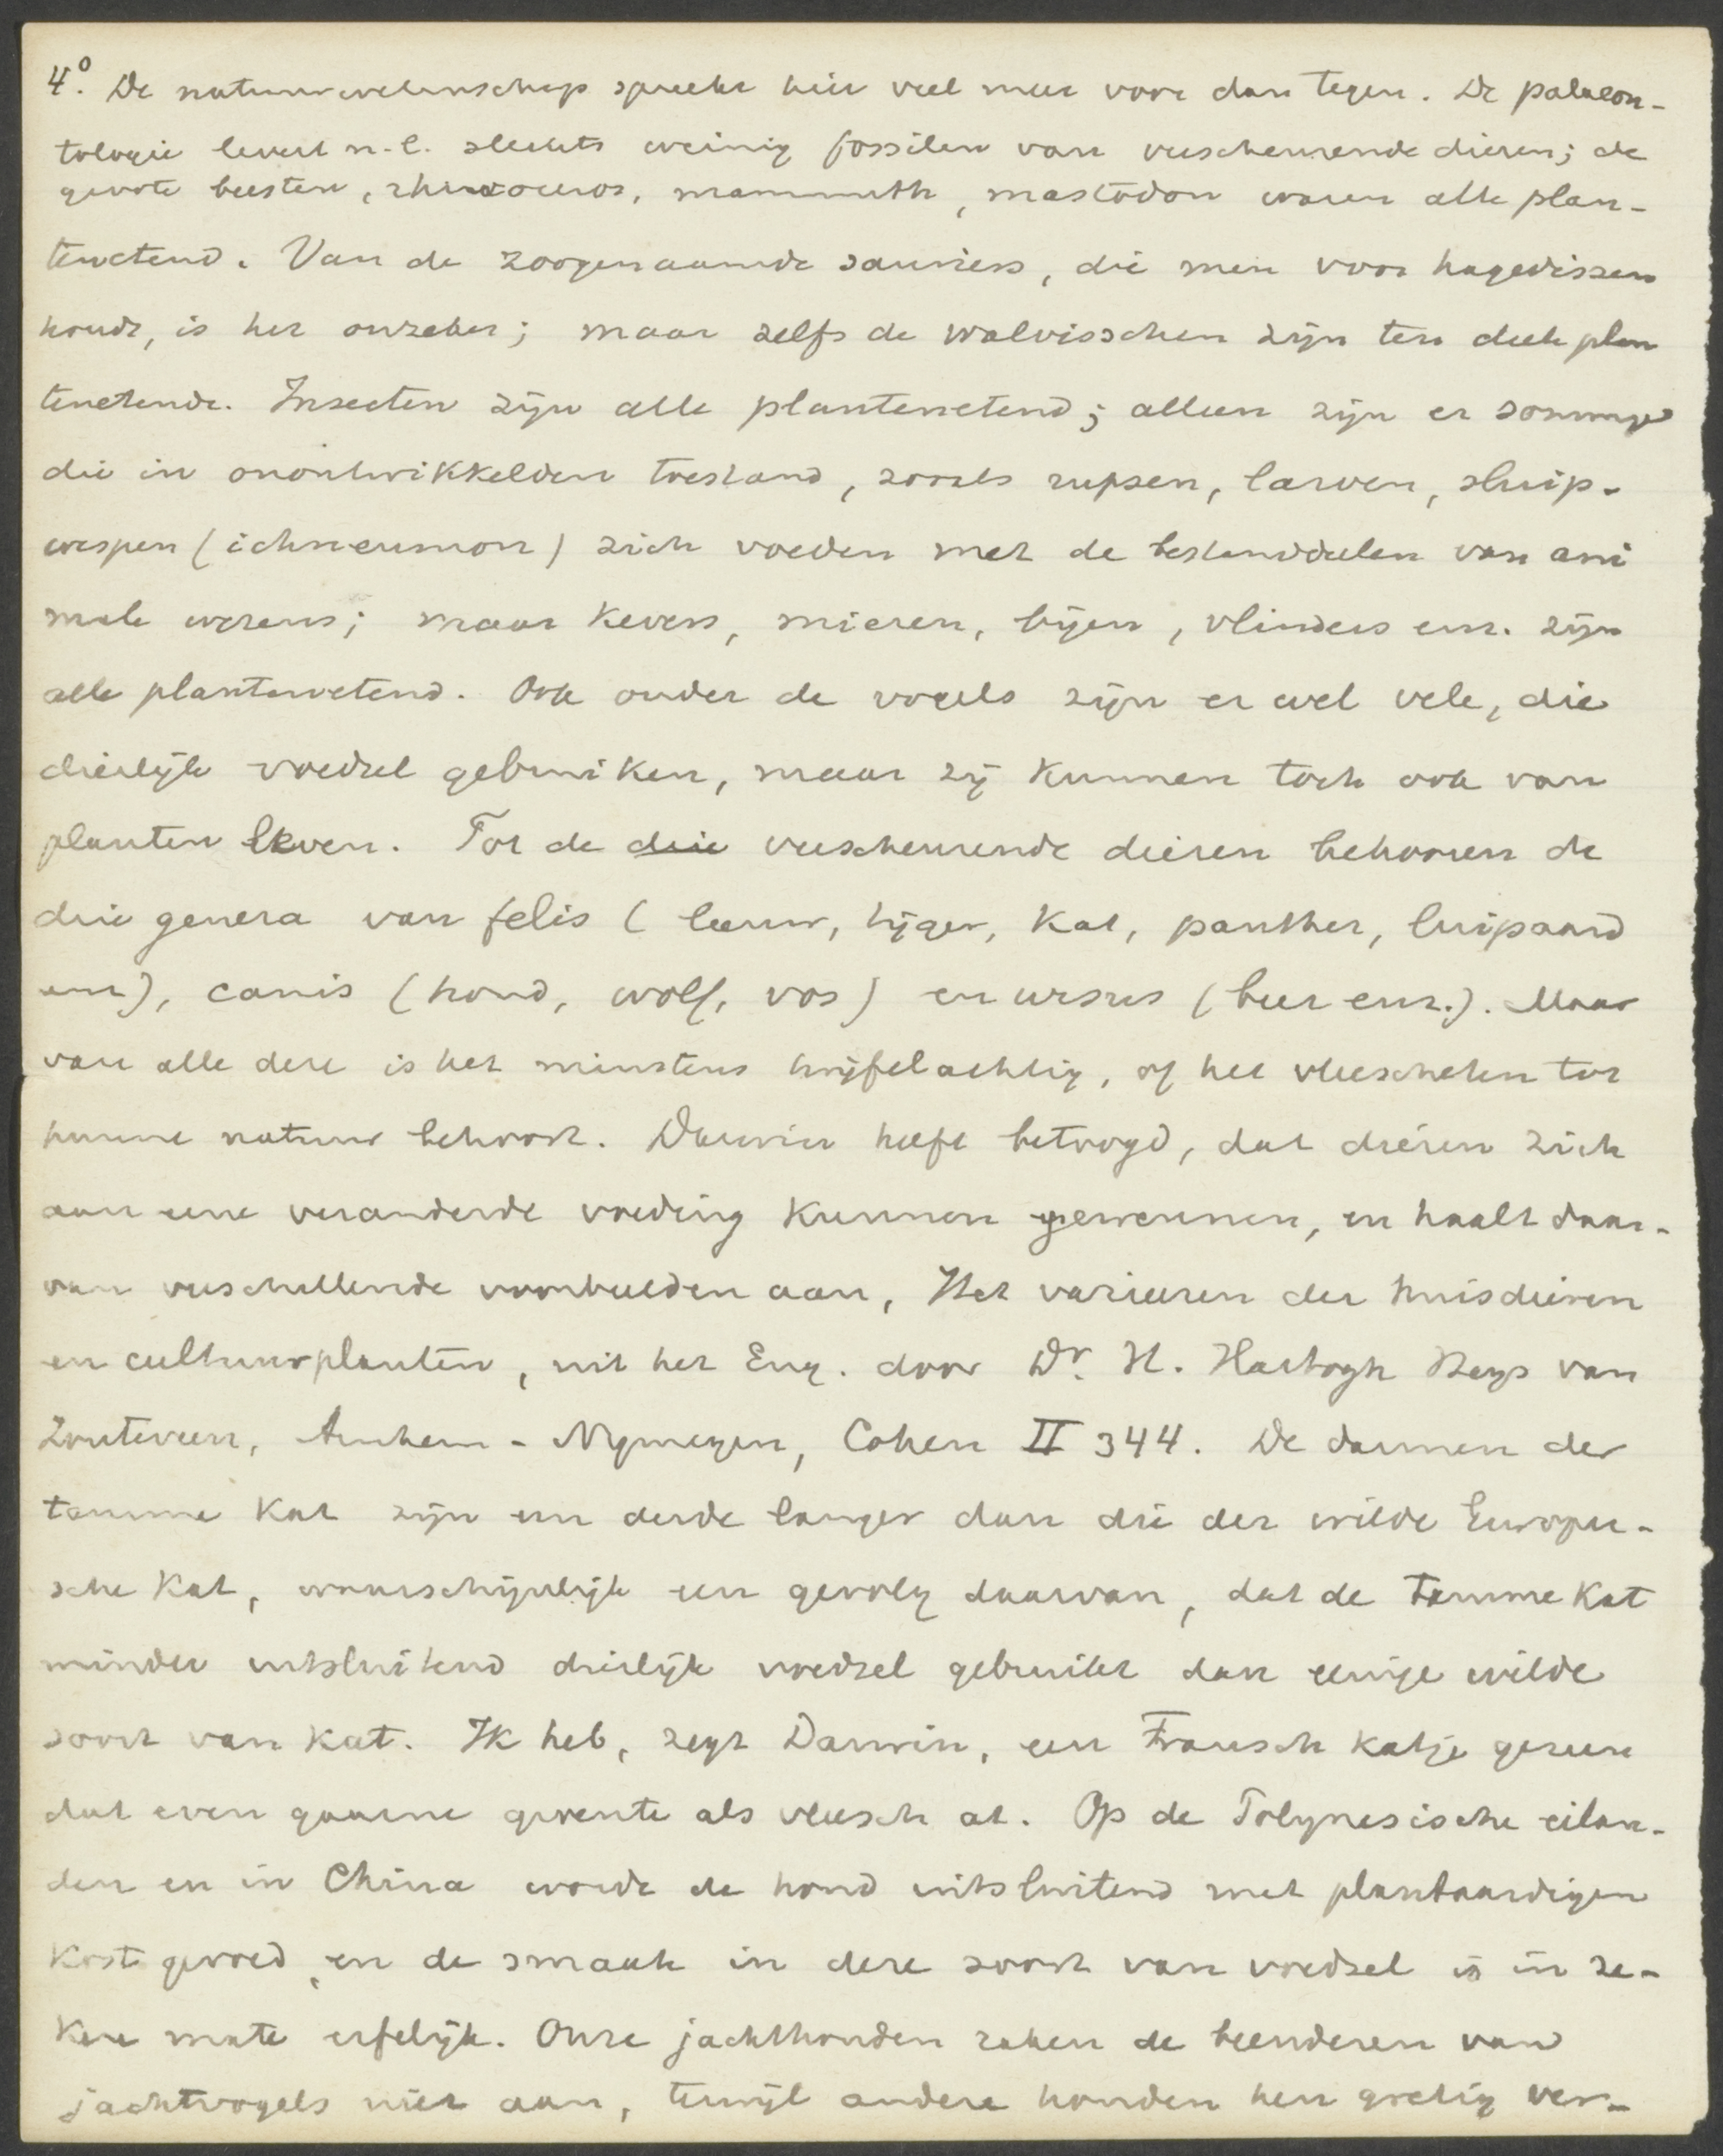 4°. De natuurwetenschap spreekt hier veel meer voor dan tegen. De palaeon-
tologie levert n.l. slechts weinig fossilen van verscheurende dieren; de
groote beesten, rhinoceros, mammuth, mastodon waren alle plan-
tenetend. Van de zoogenaamde sauriers, die men voor hagedissen
houdt, is het onzeker; maar zelfs de walvisschen zijn ten deele plan
tenetende. Insecten zijn alle plantenetend; alleen zijn er sommige
die in onontwikkelden toestand, zooals rupsen, larven, sluip-
wespen (ichneumon) zich voeden met de bestanddeelen van ani
male wezens; maar kevers, mieren, bijen, vlinders enz. zijn
alle plantenetend. Ook onder de vogels zijn er wel vele, die
dierlijk voedsel gebruiken, maar zij kunnen toch ook van
planten leven. Tot de drie verscheurende dieren behooren de
drie genera van felis (leeuw, tijger, kat, panther, luipaard
enz), canis (hond, wolf, vos) en ursus (beer enz.). Maar
van alle deze is het minstens twijfelachtig, of het vleescheten tot
hunne natuur behoort. Darwin heeft betoogd, dat dieren zich
aan eene veranderde voeding kunnen gewennen, en haalt daar-
van verschillende voorbeelden aan, Het varieeren der huisdieren
en cultuurplanten, uit het Eng. door Dr. H. Hartogh Heys van
Zouteveen, Arnhem - Nymegen, Cohen II 344. De darmen der
tamme kat zijn een derde langer dan die der wilde Europee-
sche kat, waarschijnlijk een gevolg daarvan, dat de tamme kat
minder uitsluitend dierlijk voedsel gebruikt dan eenige wilde
soort van kat. Ik heb, zegt Darwin, een Fransch katje gezien
dat even gaarne groente als vleesch at. Op de Polynesische eilan-
den en in China wordt de hond uitsluitend met plantaardigen
kost gevoed, en de smaak in deze soort van voedsel is in ze-
kere mate erfelijk. Onze jachthonden raken de beenderen van
jachtvogels niet aan, terwijl andere honden hen gretig ver-